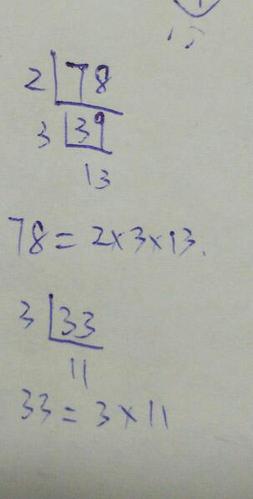 2 78
3 39
13
78 = 2×3×13.
3 33
11
33 = 3×11